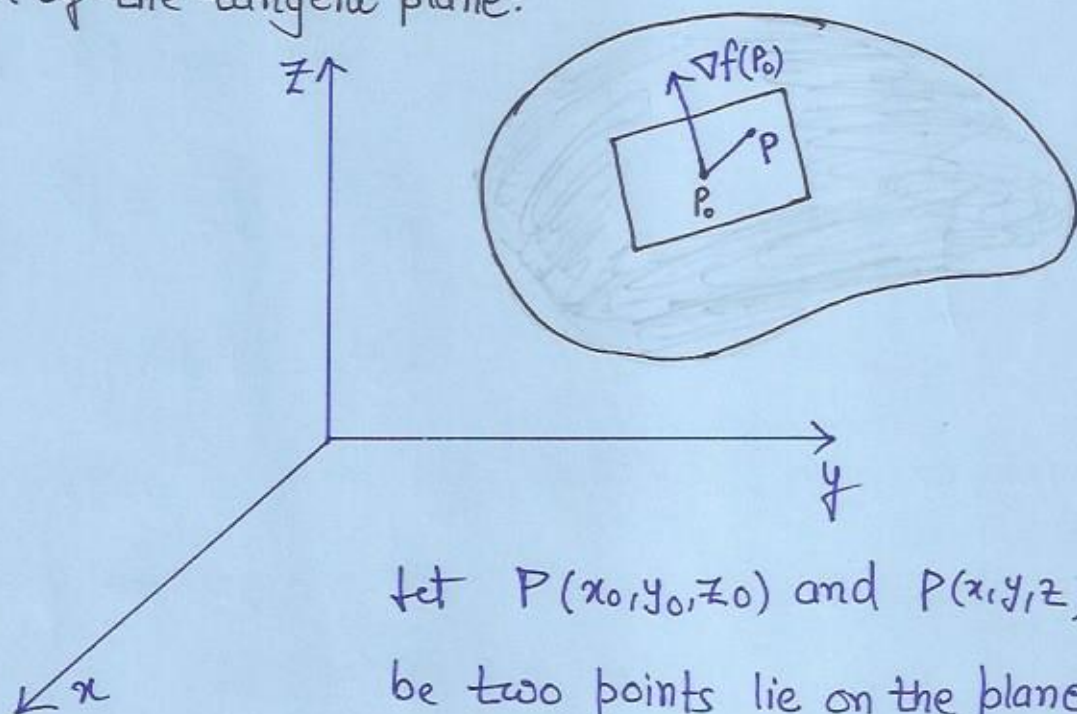 of the tangent plane.
z
∇f(P₀)
P
P₀
y
Let P(x₀,y₀,z₀) and P(x,y,z)
x
be two points lie on the plane